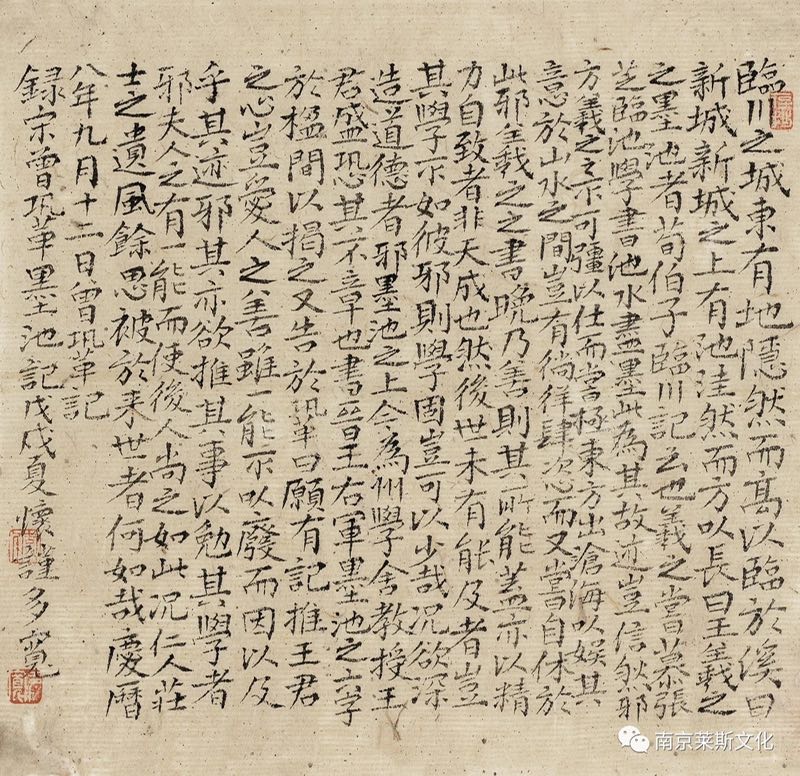 臨川之城東有地隱然而高以臨於溪曰
新城新城之上有池洼然而方以長曰王羲之
之墨池者荀伯子臨川記云也羲之嘗慕張
芝臨池學書池水盡墨此為其故迹豈信然邪
方羲之之不可彊以仕而嘗極東方出滄海以娛其
意於山水之間豈有徜徉肆恣而又嘗自休於
此邪羲之之書晚乃善則其所能蓋亦以精
力自致者非天成也然後世未有能及者豈
其學不如彼邪則學固豈可以少哉況欲深
造道德者邪墨池之上今為州學舍教授王
君盛恐其不章也書晉王右軍墨池之六字
於楹間以揭之又告於鞏曰願有記推王君
之心豈愛人之善雖一能不以廢而因以及
乎其迹邪其亦欲推其事以勉其學者
邪夫人之有一能而使後人尚之如此況仁人莊
士之遺風餘思被於来世者何如哉慶曆
八年九月十二日曾鞏記
録宋曾鞏墨池記戊戌夏懷謹多
南京莱斯文化